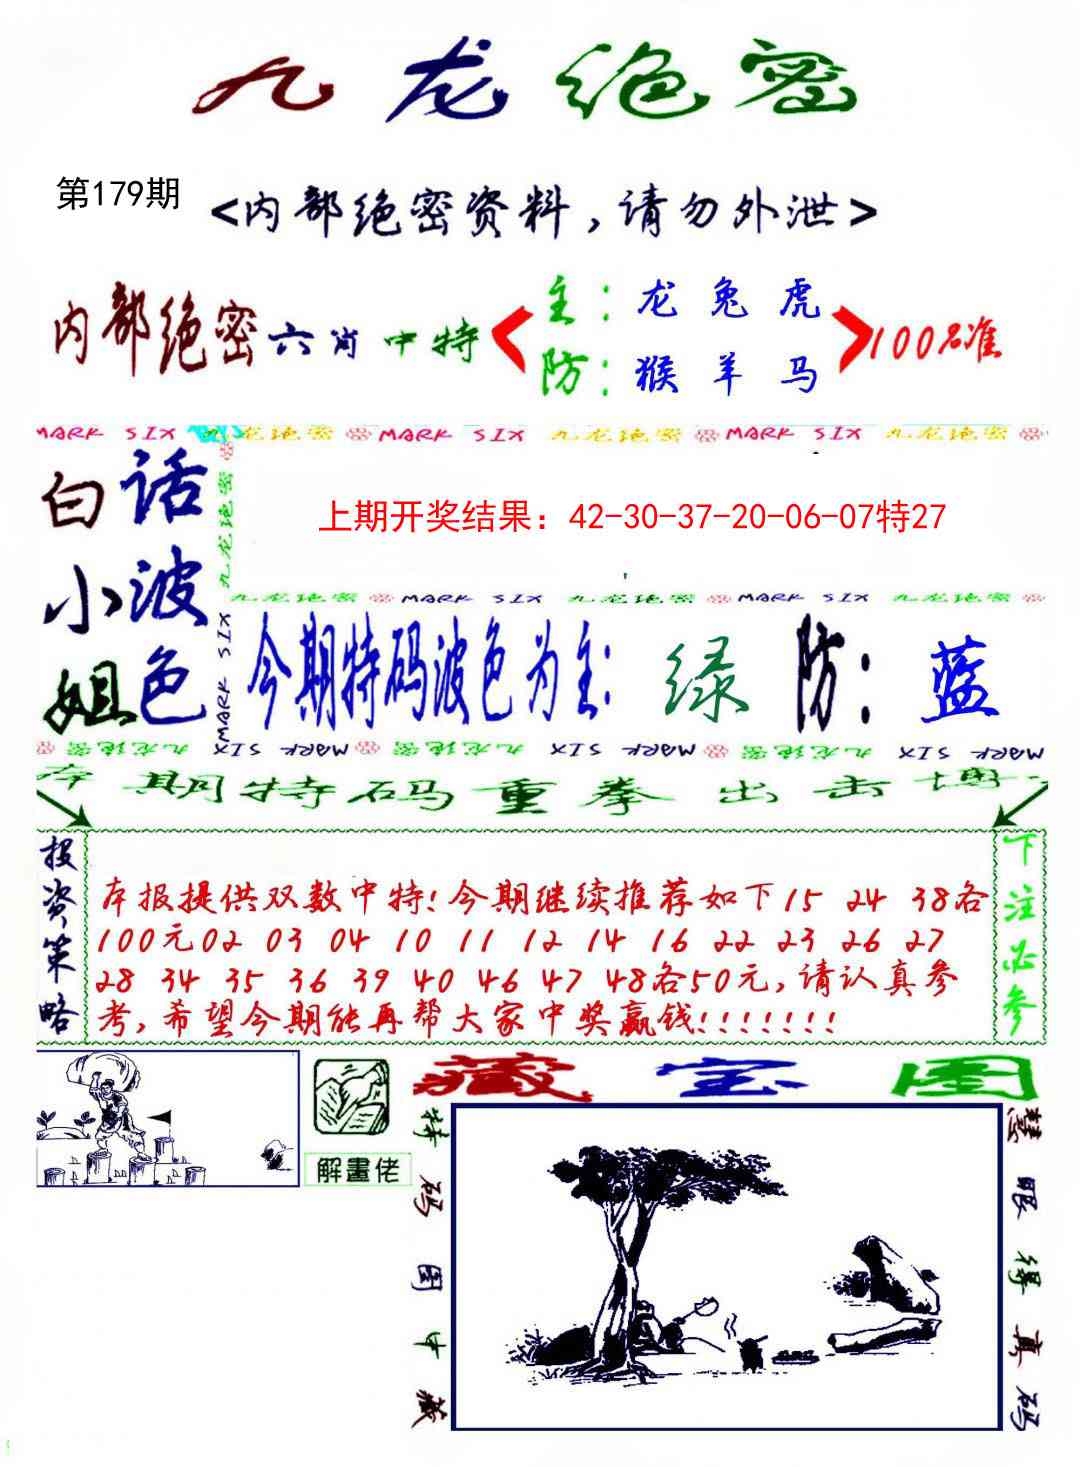 九龙绝密
第179期
<内部绝密资料，请勿外泄>
内部绝密六肖中特
主：龙 兔 虎
防：猴 羊 马
100%准
MARK SIX 九龙绝密 MARK SIX 九龙绝密 MARK SIX 九龙绝密
白话小波姐色
九龙绝密
MARK SIX
上期开奖结果：42-30-37-20-06-07特27
九龙绝密 MARK SIX 九龙绝密 MARK SIX 九龙绝密
今期特码波色为主：绿 防：蓝
九龙绝密 MARK SIX 九龙绝密 MARK SIX 九龙绝密 MARK SIX
本期特码重拳出击博一
投资策略
本报提供双数中特!今期继续推荐如下15 24 38各
100元02 03 04 10 11 12 14 16 22 23 26 27
28 34 35 36 39 40 46 47 48各50元,请认真参
考,希望今期能再帮大家中奖赢钱!!!!!!!
下注必参
解畫佬
藏宝图
特码图中藏
慧眼得真码